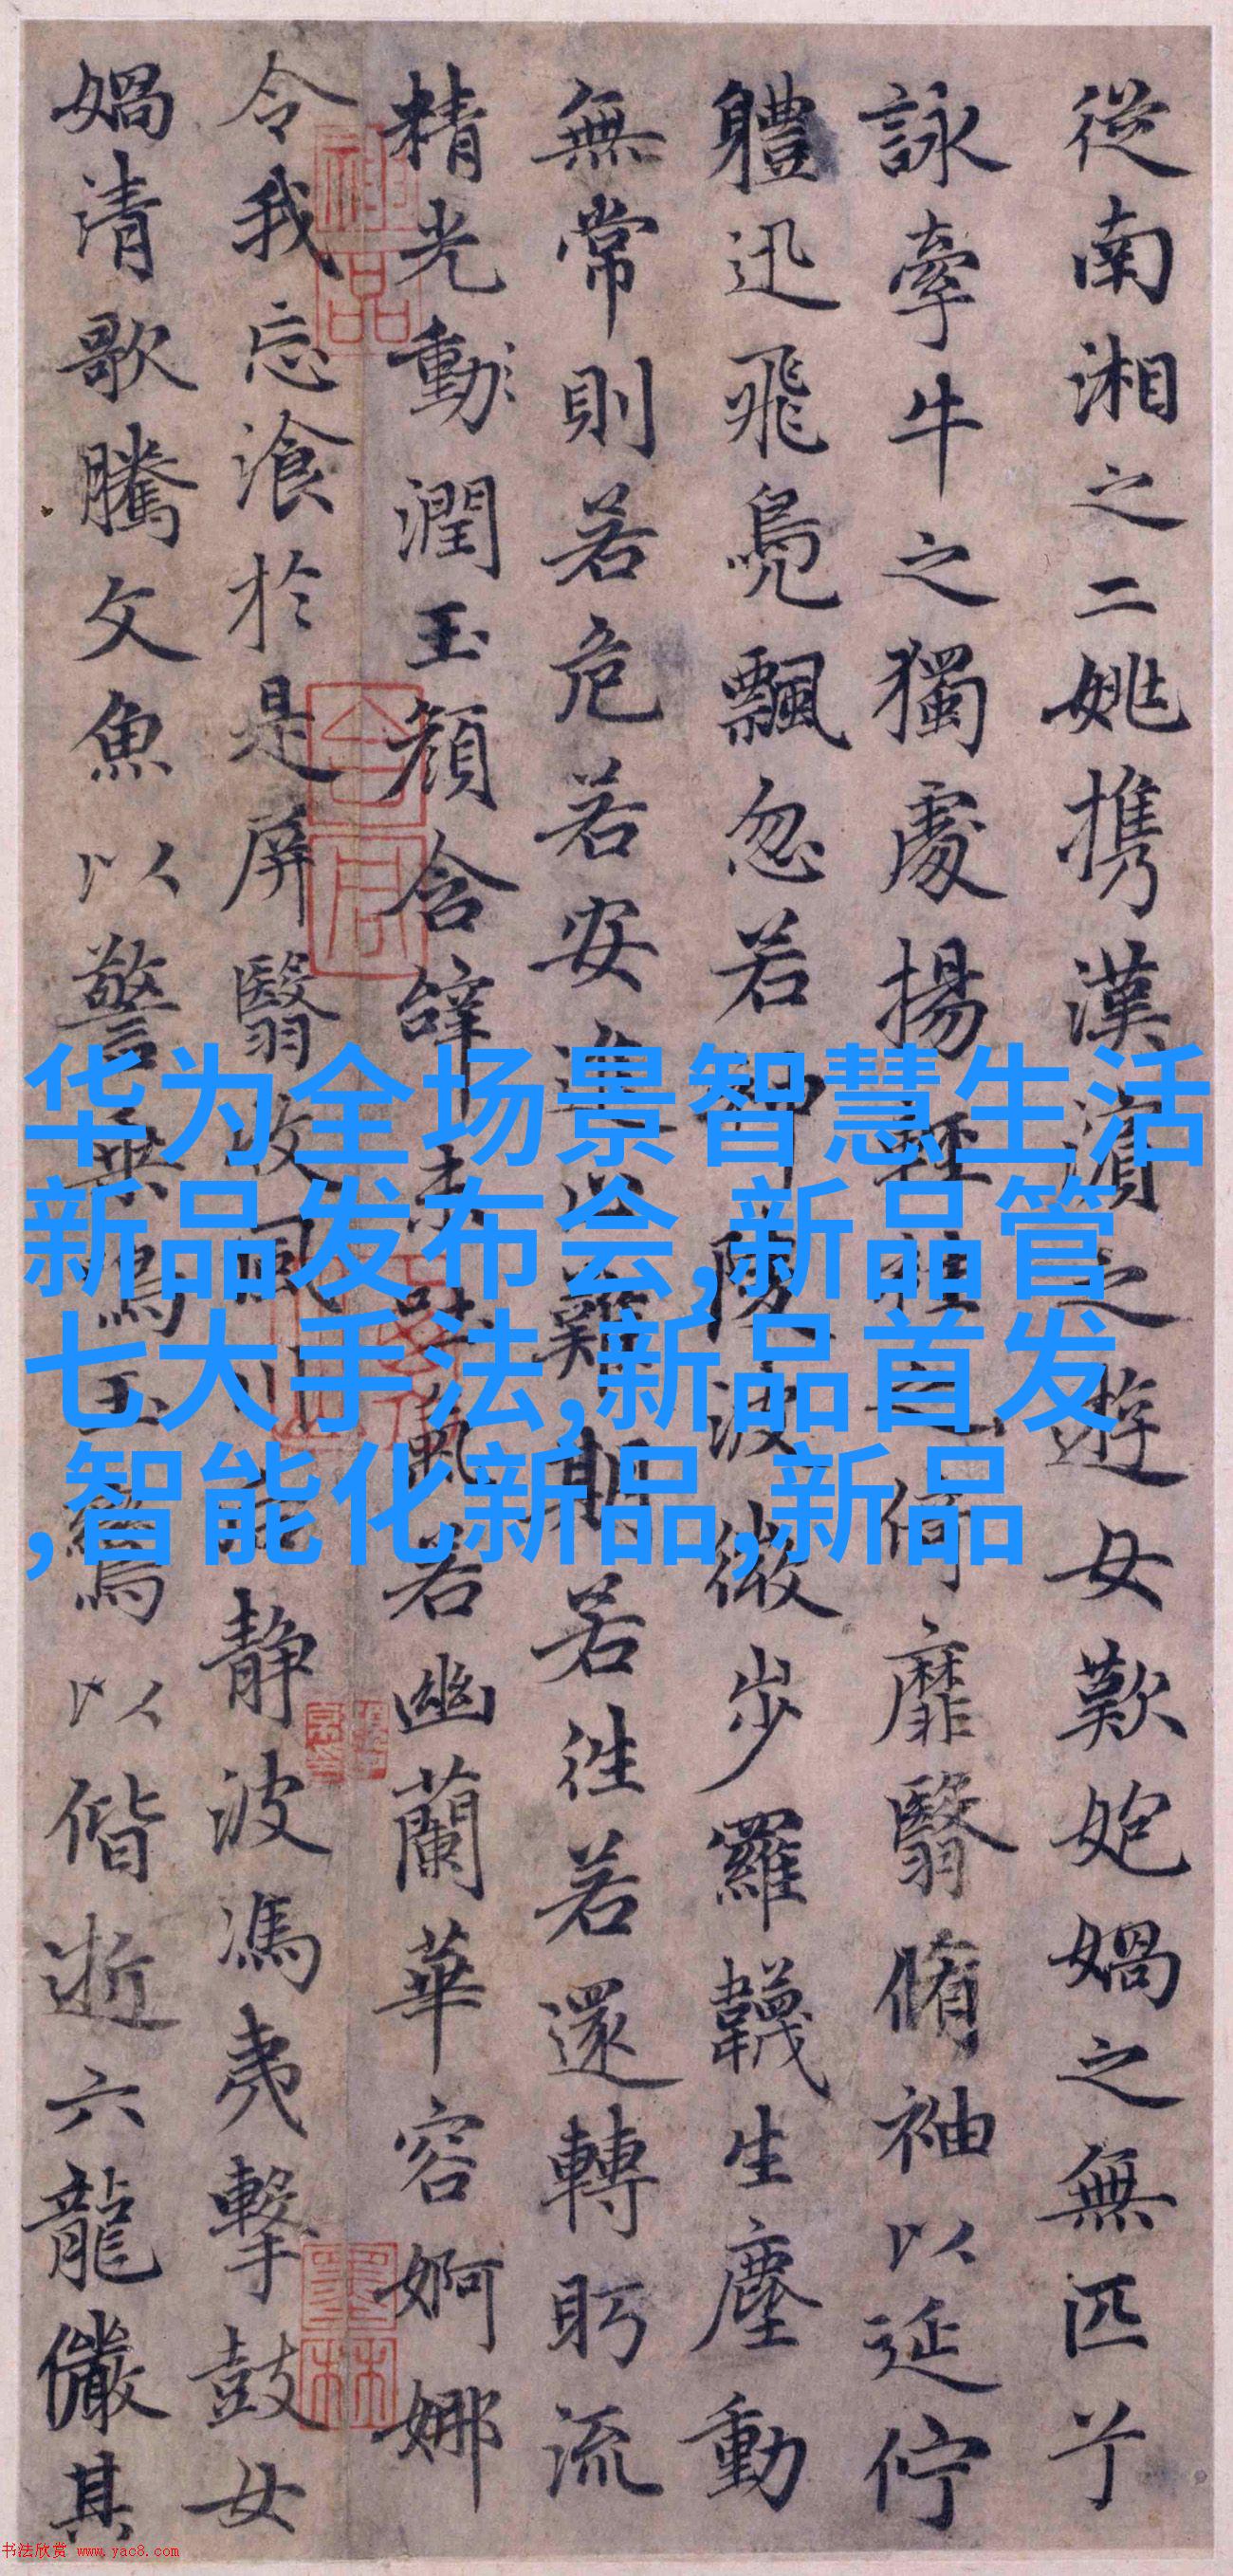 從南湘之二姚携漢濱之遊女歎媧之無匹兮
詠牽牛之獨處揚輕袿之何靡翳脩袖以延佇
軆迅飛鳧飄忽若神陵波微步羅韈生塵動
無常則若危若安進止難期若往若還轉眄流
精光動潤玉顏含辭未吐氣若幽蘭華容婀娜
令我忘飡於是屏翳收風川后靜波馮夷擊鼓女
媧清歌騰文魚以警乘鳴玉鸞以偕逝六龍儼其
神品
墨林
华为全场景智慧生活
新品发布会,新品管
七大手法,新品首发
,智能化新品,新品
书法欣赏 www.yac8.com